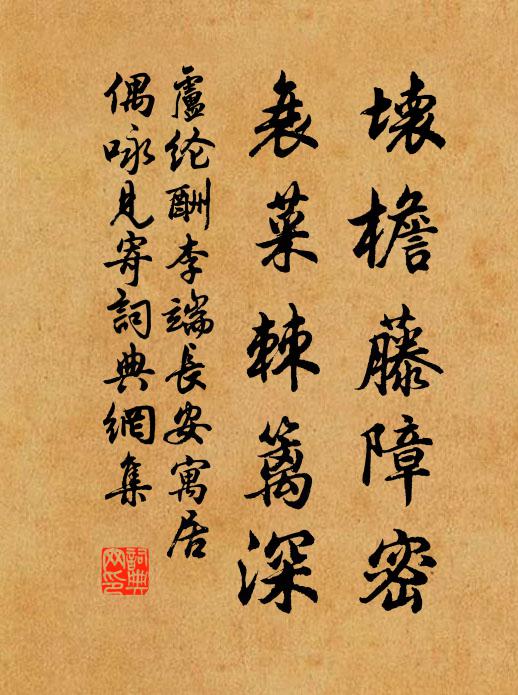 壞檐藤障密
衰菜棘篱深
盧纶酬李端長安寓居
偶咏見寄詞典網集
詞典
网印